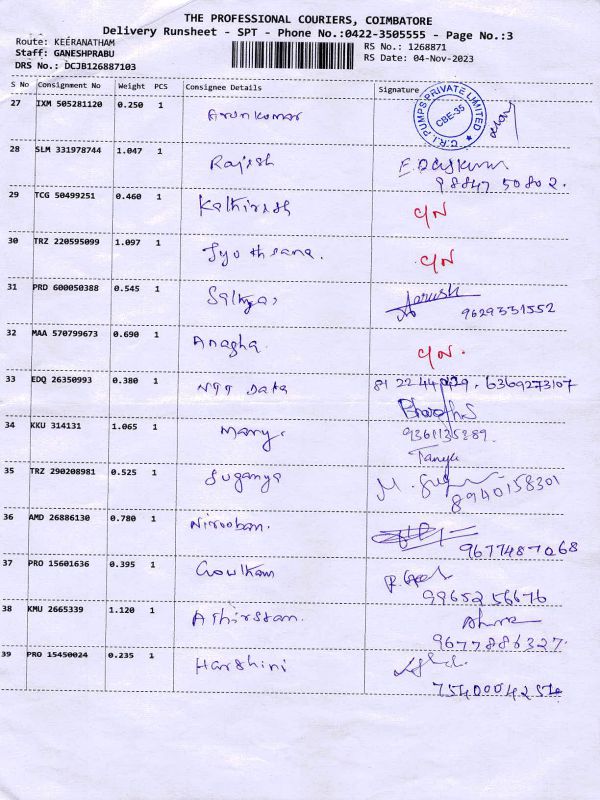 THE PROFESSIONAL COURIERS, COIMBATORE
Delivery Runsheet - SPT - Phone No.:0422-3505555 - Page No.:3
Route: KEERANATHAM
Staff: GANESHPRABU
DRS No.: DCJB126887103
RS No.: 1268871
RS Date: 04-Nov-2023
S No Consignment No Weight PCS Consignee Details Signature
27 IXM 505281120 0.250 1 Arunkumar
C.R.I. PUMPS PRIVATE LIMITED
CBE-35
28 SLM 331978744 1.047 1 Rajesh
98847 50802.
29 TCG 50499251 0.460 1 Kathiresh C/N
30 TRZ 220595099 1.097 1 Jyothsana. C/N
31 PRD 600050388 0.545 1 Sathya, Aarush
9629331552
32 MAA 570799673 0.690 1 Anagha. C/N.
33 EDQ 26350993 0.380 1 NTT Data 6369273107
34 KKU 314131 1.065 1 Mary. 9361135389.
Tanya
35 TRZ 290208981 0.525 1 Suganya
8940158301
36 AMD 26886130 0.780 1 Nirooban.
9677487068
37 PRO 15601636 0.395 1 Goutham
9965256676
38 KMU 2665339 1.120 1 Athirstam.
9677886327.
39 PRO 15450024 0.235 1 Harshini